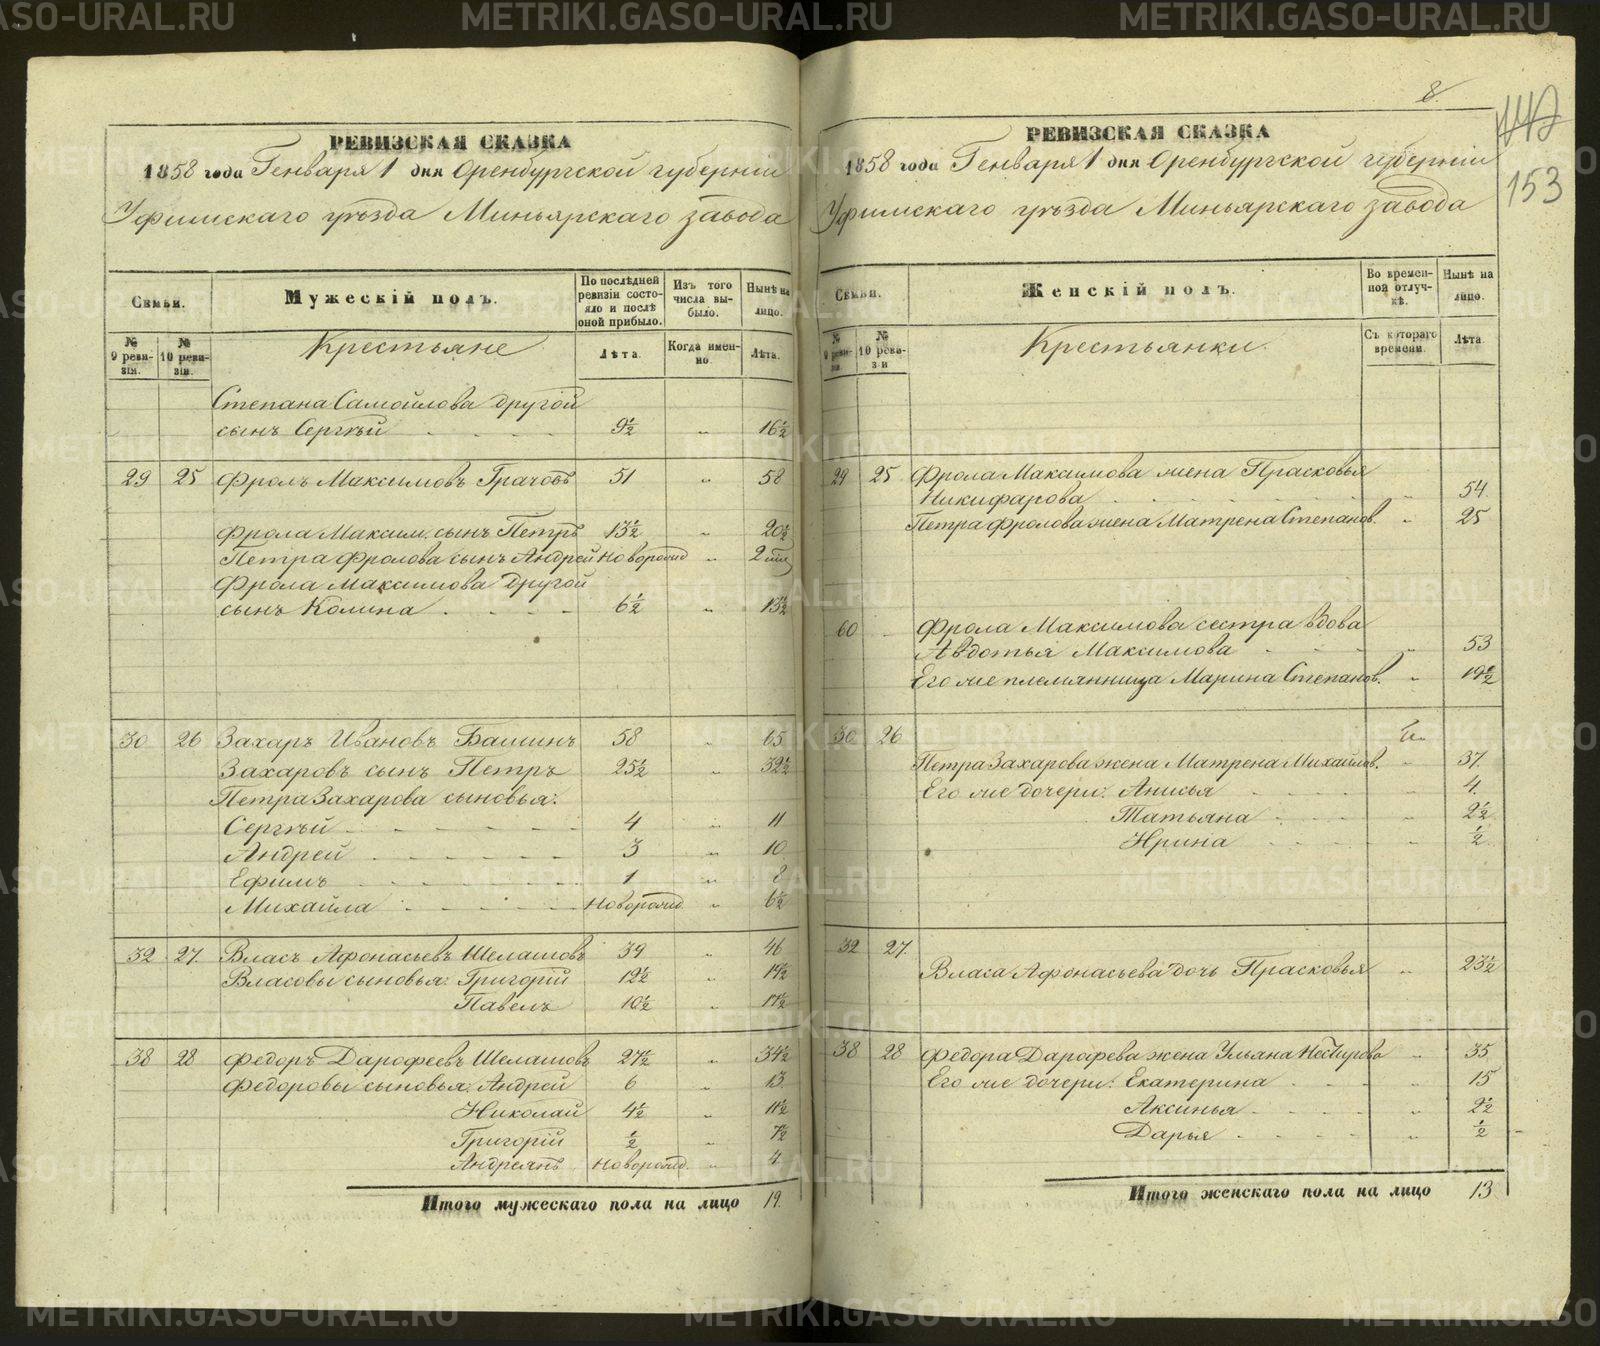 8.
142
153
РЕВИЗСКАЯ СКАЗКА
1858 года Генваря 1 дня Оренбургской губерніи
Уфимскаго уѣзда Миньярскаго завода
Семьи.
Мужескій полъ.
По послѣдней ревизіи состояло и послѣ оной прибыло.
Изъ того числа выбыло.
Нынѣ на лицо.
№ 9 ревизіи.
№ 10 ревизіи.
Крестьяне
Лѣта.
Когда именно.
Лѣта.
Степана Самойлова другой
сынъ Сергѣй 9½ „ 16½
29 25 Фролъ Максимовъ Грачовъ 51 „ 58
Фрола Максим. сынъ Петръ 13½ „ 20½
Петра Фролова сынъ Андрей новорожд „ 2
Фрола Максимова другой
сынъ Колина 6½ „ 13½
30 26 Захаръ Ивановъ Башинъ 58 „ 65
Захаровъ сынъ Петръ 25½ „ 32½
Петра Захарова сыновья:
Сергѣй 4 „ 11
Андрей 3 „ 10
Ефимъ 1 „ 8
Михайла новорожд. „ 6½
32 27. Власъ Афонасьевъ Шелашовъ 39 „ 46
Власовы сыновья: Григорій 12½ „ 19½
Павелъ 10½ „ 17½
38 28 Федоръ Дарофеевъ Шелашовъ 27½ „ 34½
Федоровы сыновья: Андрей 6 „ 13
Николай 4½ „ 11½
Григорій ½ „ 7½
Андреянъ новорожд. „ 4
Итого мужескаго пола на лицо 19.
РЕВИЗСКАЯ СКАЗКА
1858 года Генваря 1 дня Оренбургской губерніи
Уфимскаго уѣзда Миньярскаго завода
Семьи.
Женскій полъ.
Во временной отлучкѣ.
Нынѣ на лицо.
№ 9 ревизіи
№ 10 ревизи
Крестьянки.
Съ котораго времени.
Лѣта.
29 25 Фрола Максимова жена Прасковья
Никифарова „ 54.
Петра Фролова жена Матрена Степанов. „ 25
60 Фрола Максимова сестра вдова
Авдотья Максимова „ 53
Его же племянница Марина Степанов. „ 19½
30 26
Петра Захарова жена Матрена Михайлов. „ 37.
Его же дочери: Анисья „ 4.
Татьяна „ 2½
Ирина „ ½
32 27.
Власа Афонасьева дочь Прасковья „ 23½
38 28 Федора Дарафева жена Ульяна Нестирова „ 35
Его же дочери: Екатерина „ 15
Аксинья „ 2½
Дарья „ ½
Итого женскаго пола на лицо 13
METRIKI.GASO-URAL.RU